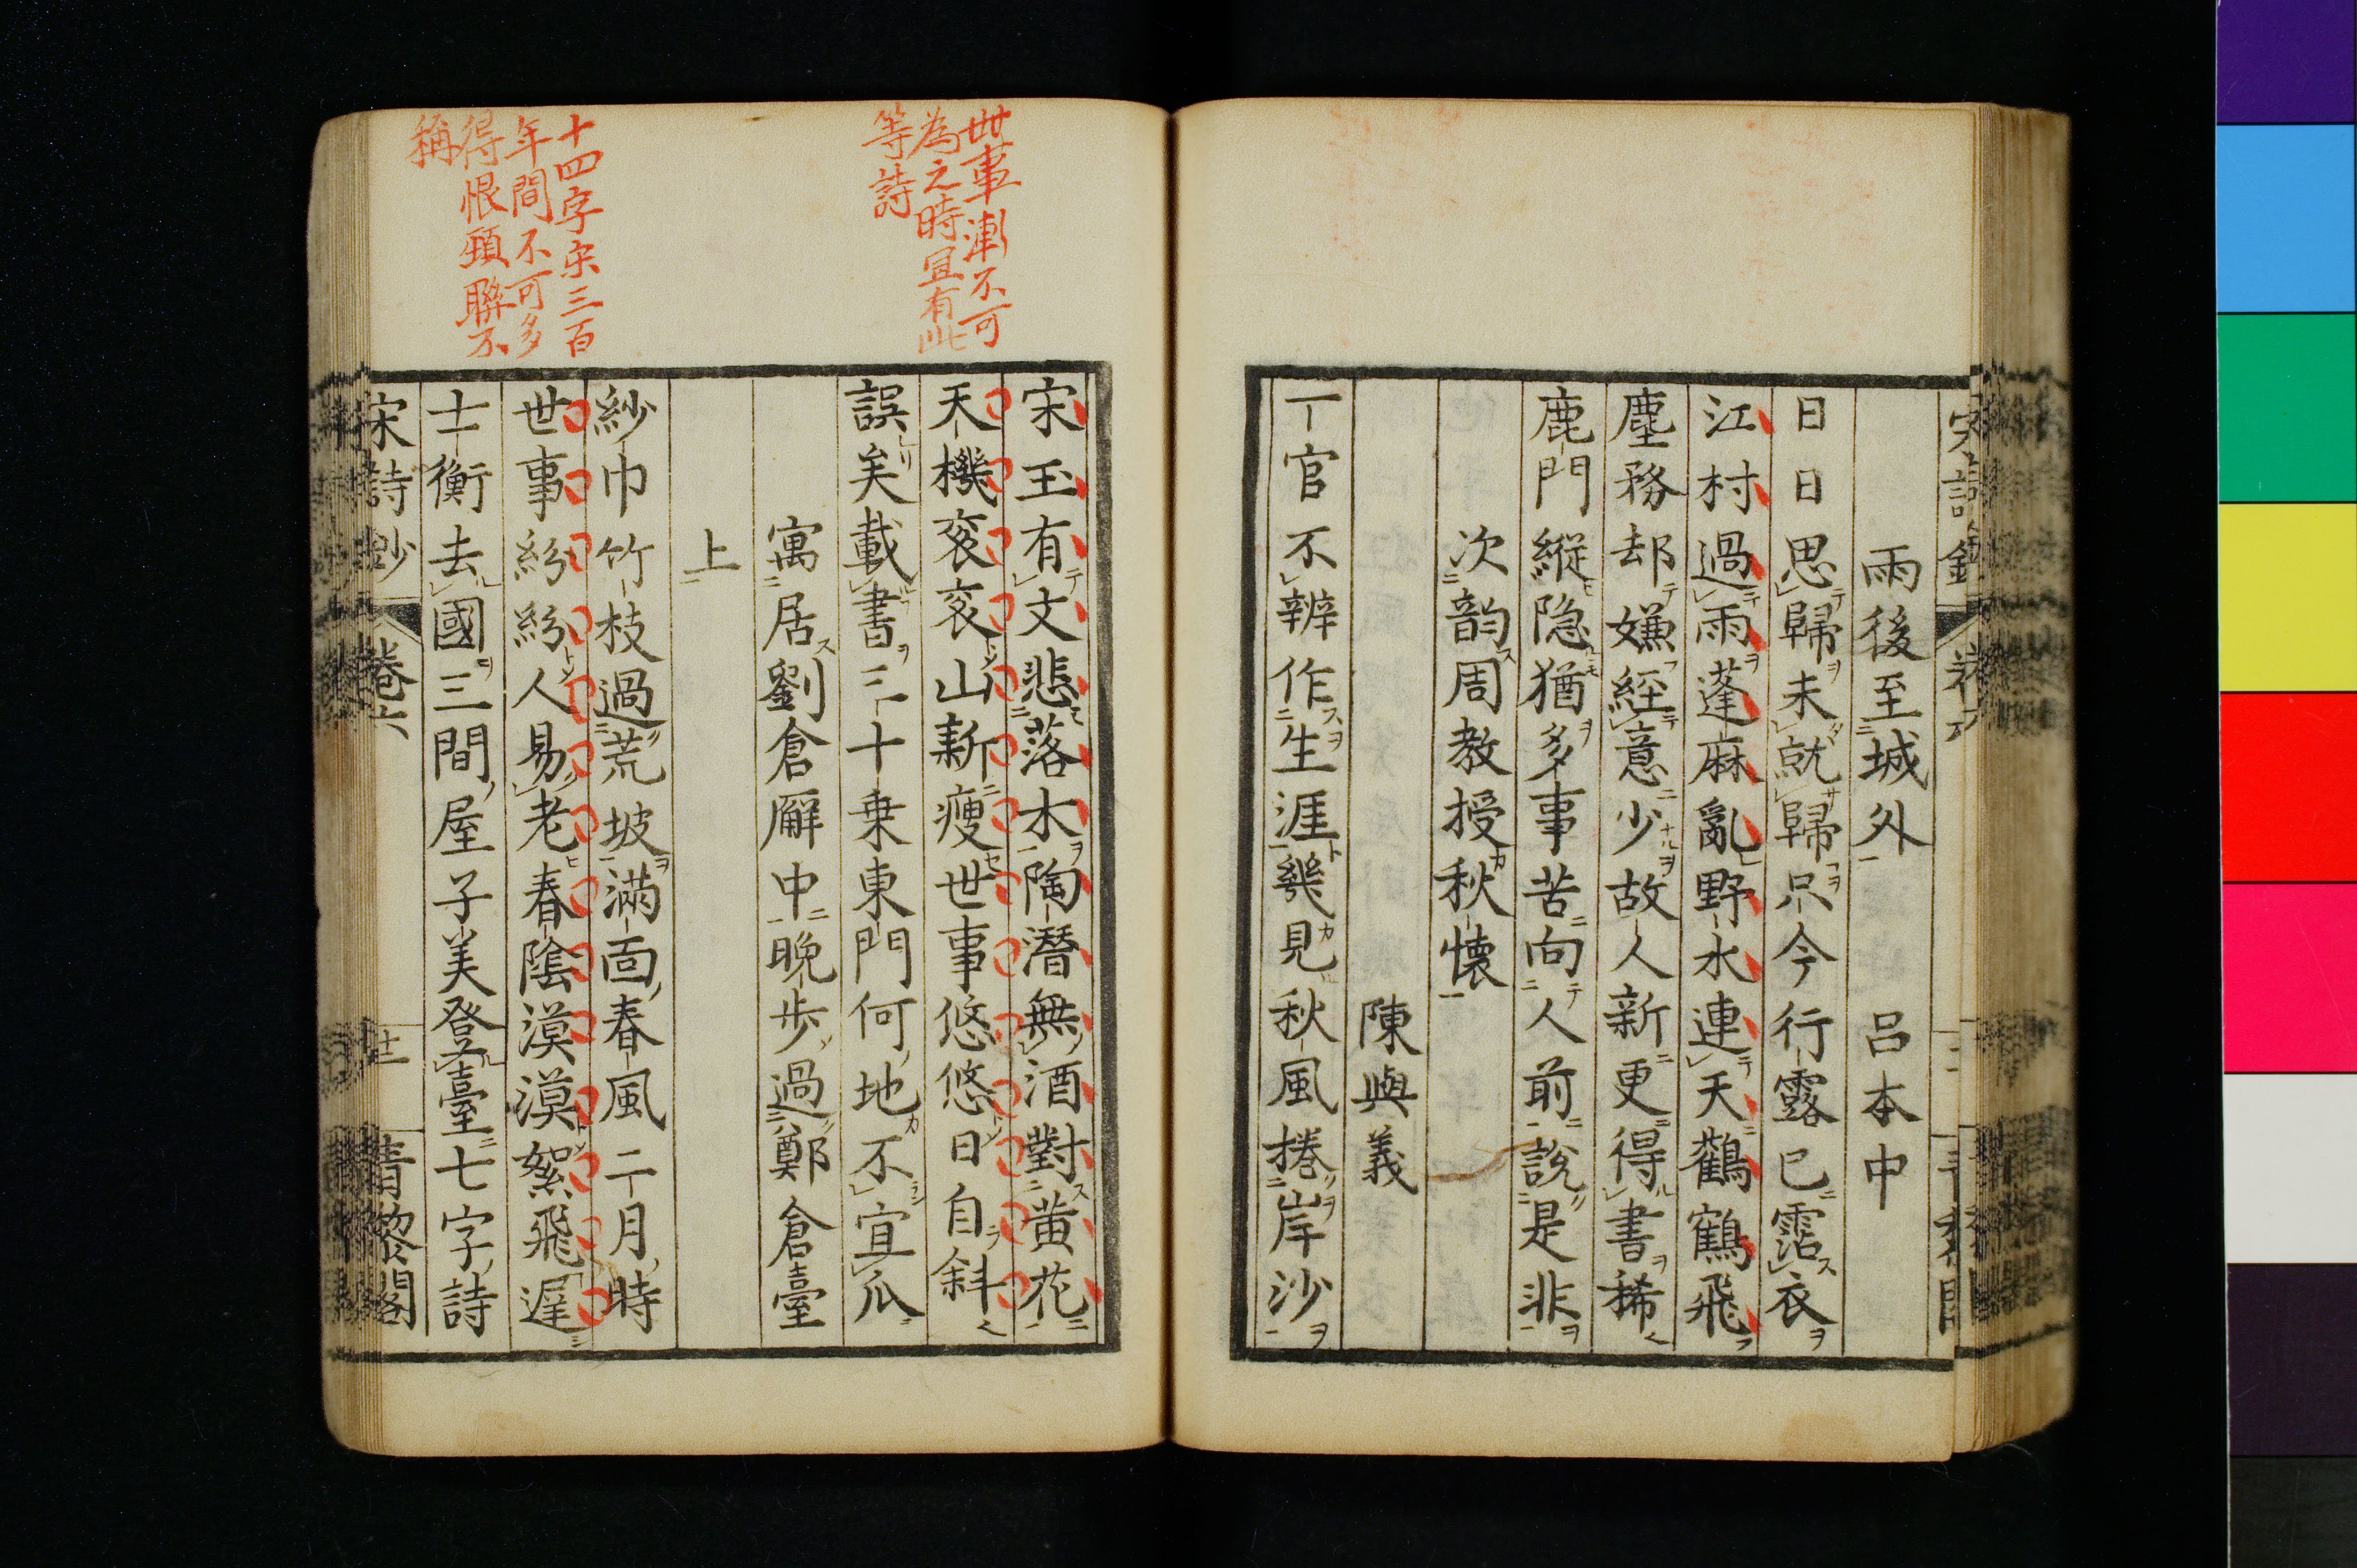 雨後至城外　呂本中
日日思歸未就歸只今行露已霑衣
江村過雨蓬麻亂野水連天鸛鶴飛
塵務却嫌經意少故人新更得書稀
鹿門縦隐猶多事苦向人前說是非
次韵周教授秋懐
陳與義
一官不辨作生涯幾見秋風捲岸沙
世事漸不可
為之時宜有此
等詩
宋玉有文悲落木陶潛無酒對黄花
天機衮衮山新瘦世事悠悠日自斜
誤矣載書三十乗東門何地不宜瓜
寓居劉倉廨中晩歩過鄭倉臺
上
十四字宋三百
年間不可多
得恨頸聯不
稱
紗巾竹枝過荒坡滿面春風二月時
世事紛紛人易老春陰漠漠絮飛遅
士衡去國三間屋子美登臺七字詩
宋詩鈔　卷六　青黎閣